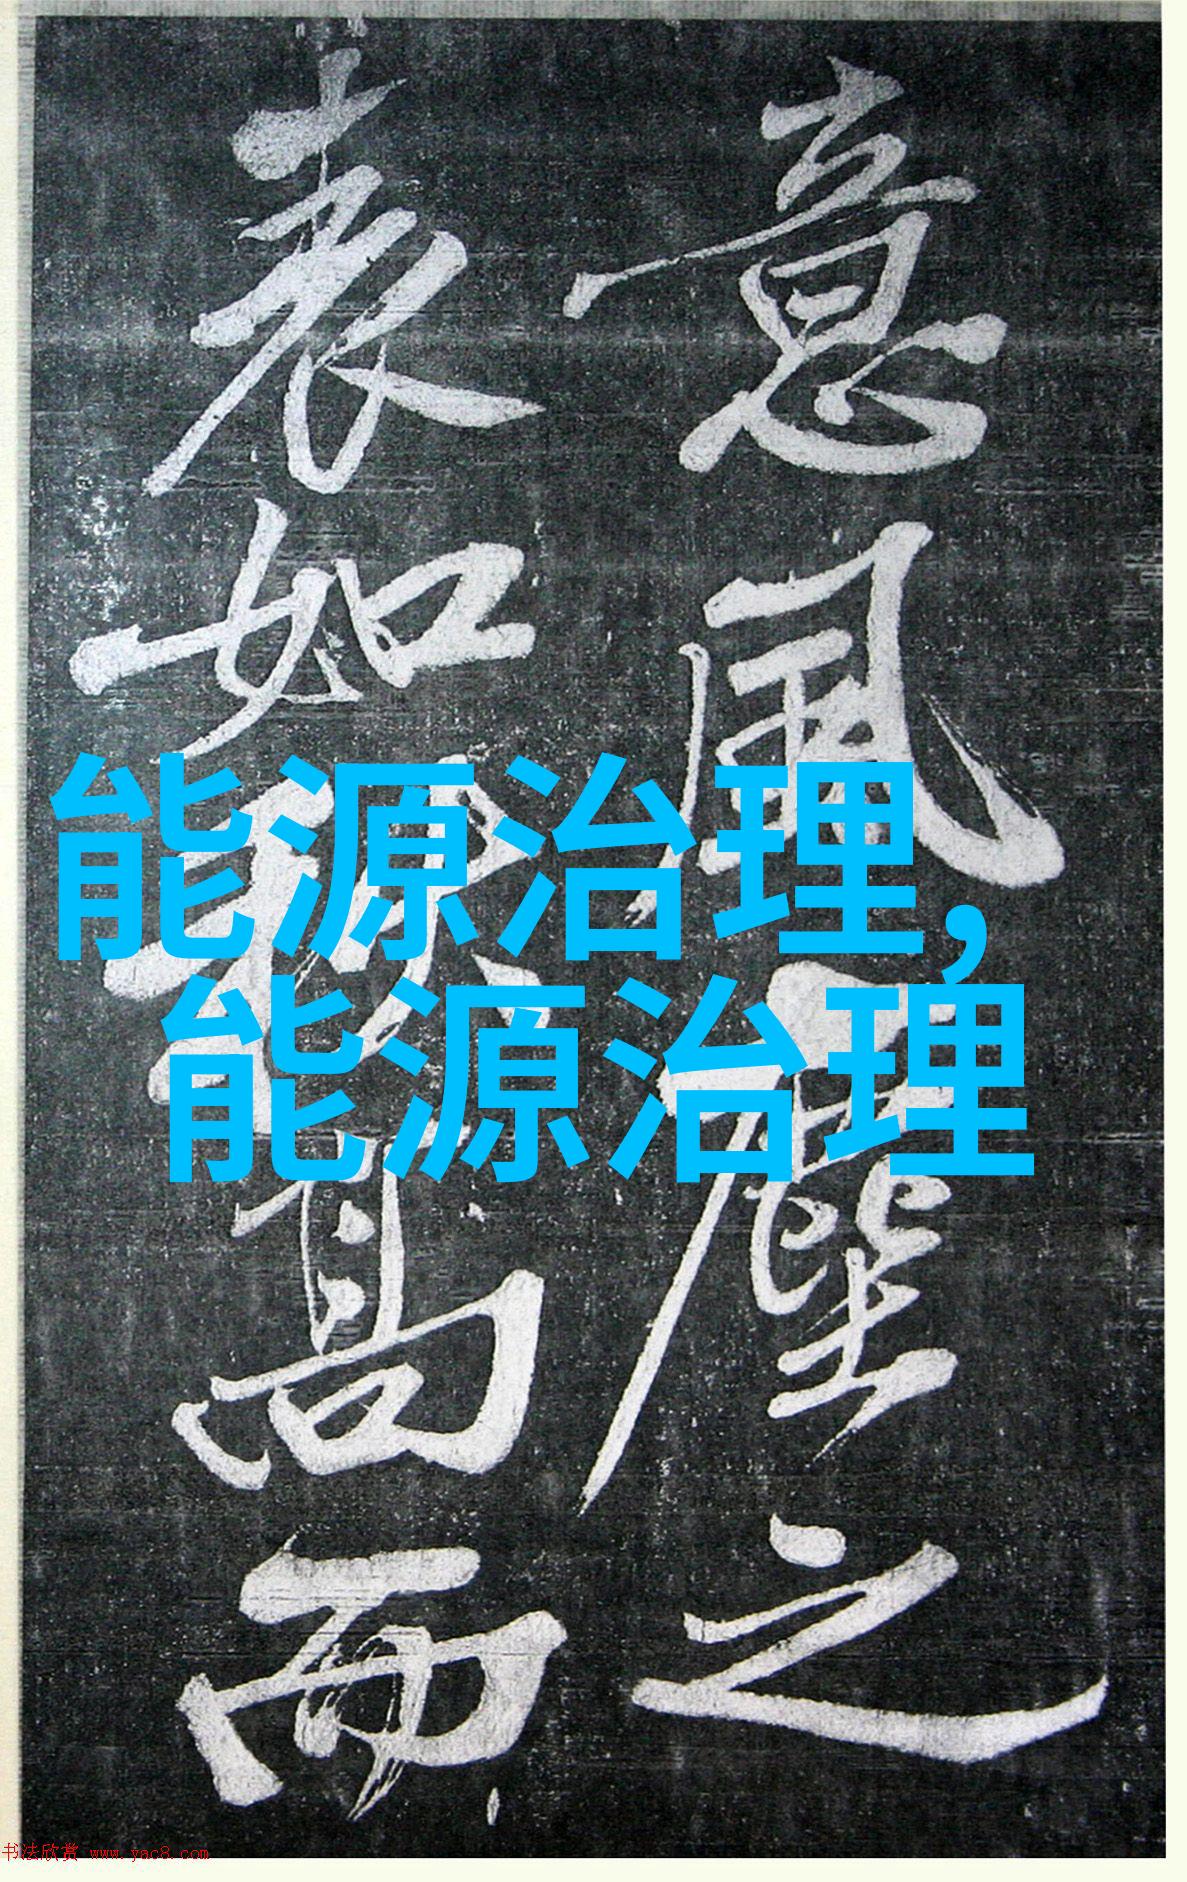 意風塵之
表如秋高而
能源治理,
能源治理
书法欣赏 www.yac8.com